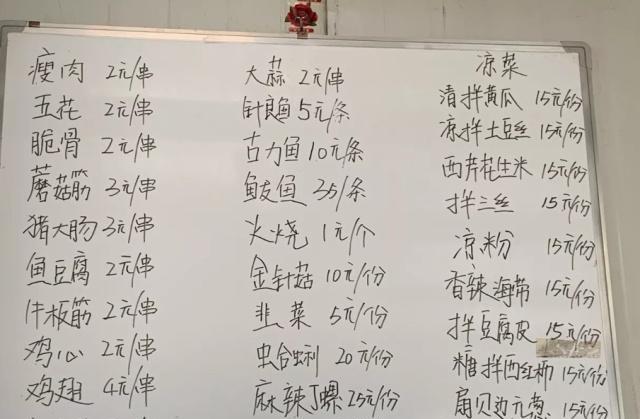 瘦肉 2元/串
五花 2元/串
脆骨 2元/串
蘑菇筋 3元/串
猪大肠 3元/串
鱼豆腐 2元/串
牛板筋 2元/串
鸡心 2元/串
鸡翅 4元/串
大蒜 2元/串
针良鱼 5元/条
古力鱼 10元/条
鲅鱼 35/条
火烧 1元/个
金针菇 10元/份
韭菜 5元/份
蛤蜊 20元/份
麻辣丁螺 25元/份
凉菜
清拌黄瓜 15元/份
凉拌土豆丝 15元/份
西芹花生米 15元/份
拌三丝 15元/份
凉粉 15元/份
香辣海带 15元/份
拌豆腐皮 15元/份
糖拌西红柿 15元/份
扇贝边元葱 15元/份